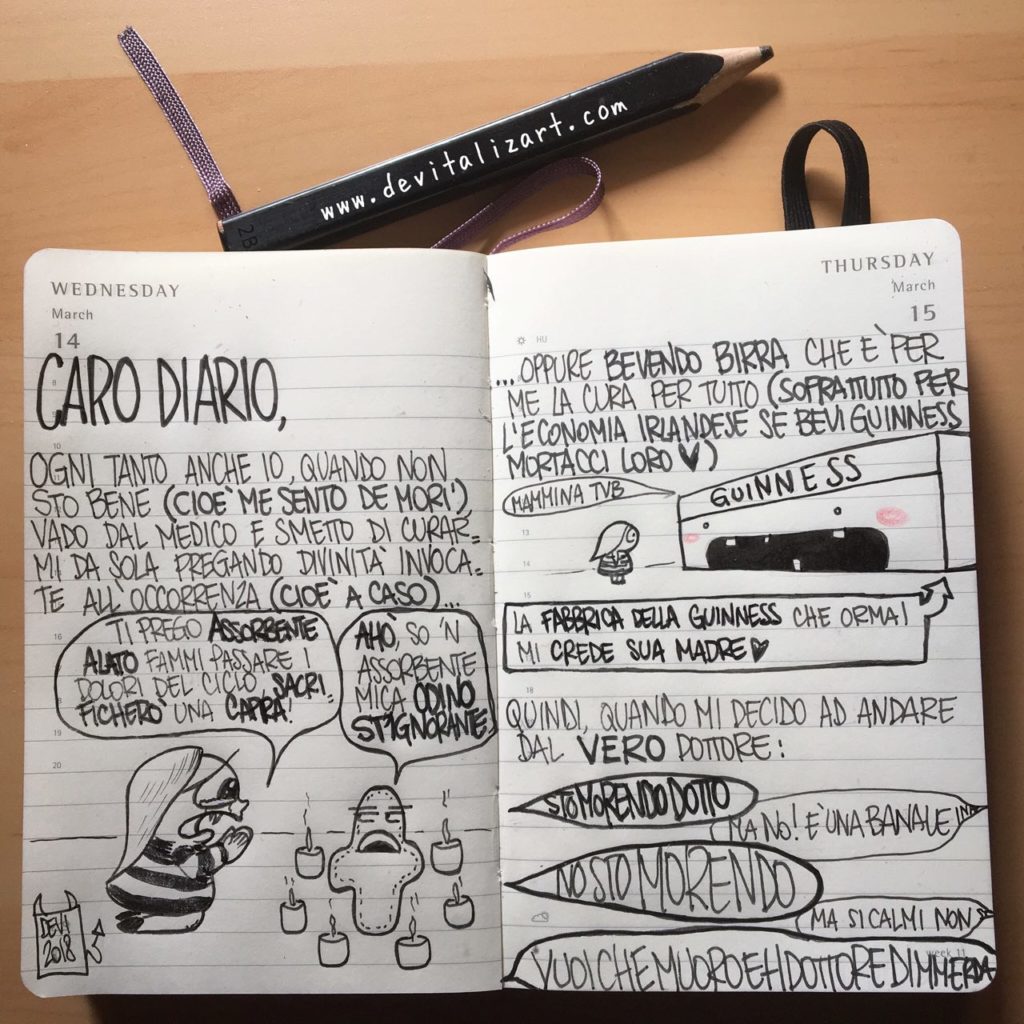 www.devitalizart.com
2B
WEDNESDAY
March
14
CARO DIARIO,
OGNI TANTO ANCHE IO, QUANDO NON
STO BENE (CIOE' ME SENTO DE MORI')
VADO DAL MEDICO E SMETTO DI CURAR-
MI DA SOLA PREGANDO DIVINITÀ INVOCA-
TE ALL'OCCORRENZA (CIOÈ A CASO)...
TI PREGO ASSORBENTE
ALATO FAMMI PASSARE I
DOLORI DEL CICLO, SACRI
FICHERÒ UNA CAPRA!
AHÒ, SO 'N
ASSORBENTE
MICA ODINO
ST'IGNORANTE
DEVA
2018
THURSDAY
March
15
HU
...OPPURE BEVENDO BIRRA CHE È PER
ME LA CURA PER TUTTO (SOPRATTUTTO PER
L'ECONOMIA IRLANDESE SE BEVI GUINNESS
MORTACCI LORO ♥)
MAMMINA TVB
GUINNESS
LA FABBRICA DELLA GUINNESS CHE ORMAI
MI CREDE SUA MADRE ♥
QUINDI, QUANDO MI DECIDO AD ANDARE
DAL VERO DOTTORE:
STO MORENDO DOTTO
MA NO! È UNA BANALE INA
NO STO MORENDO
MA SI CALMI NON
week 11
VUOI CHE MUORO EH DOTTORE DI MMERDA